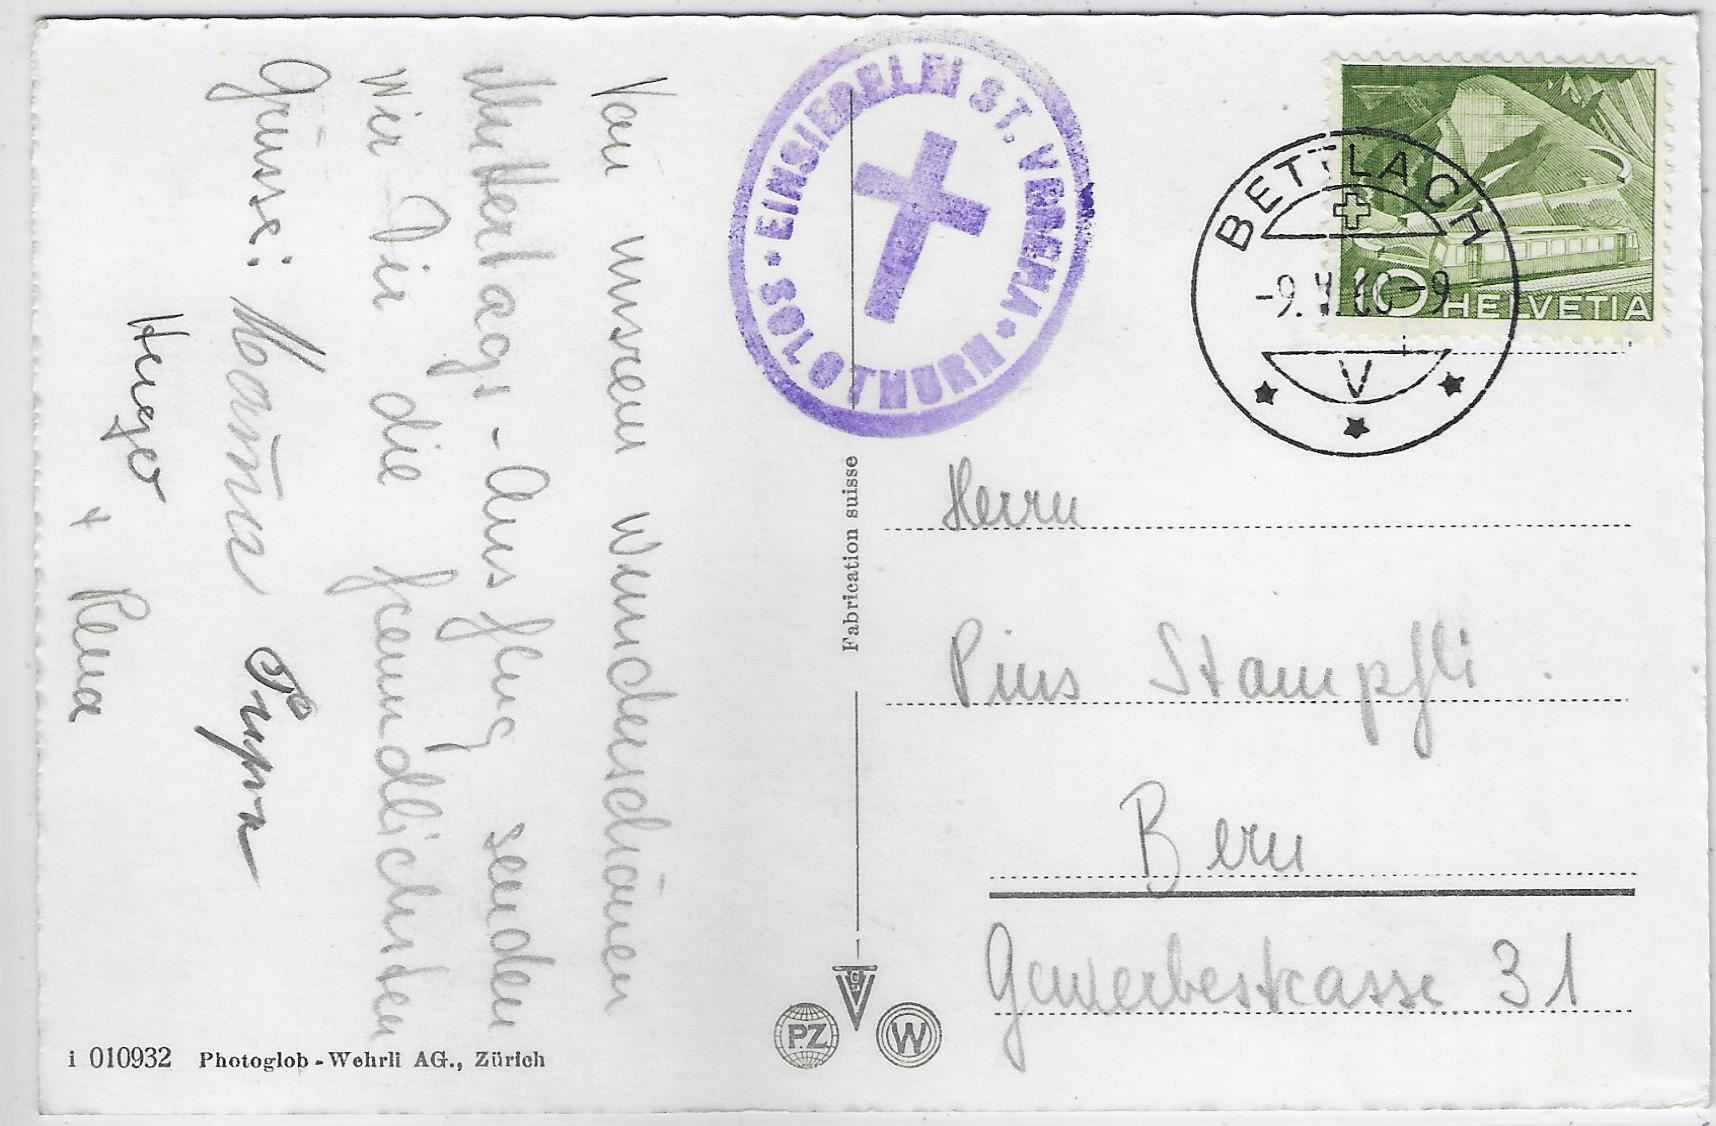 Von unserem wunderschönen
Muttertags-Ausflug senden
wir Dir die freundlichsten
Grüsse: Mamma Pappa
Hugo
+ Rena
EINSIEDELEI ST. VERENA
SOLOTHURN
BETTLACH
-9.V.60-9
V
10 HELVETIA
Fabrication suisse
Herrn
Pius Stampfli.
Bern
Gewerbestrasse 31
PZ
W
i 010932 Photoglob-Wehrli AG., Zürich